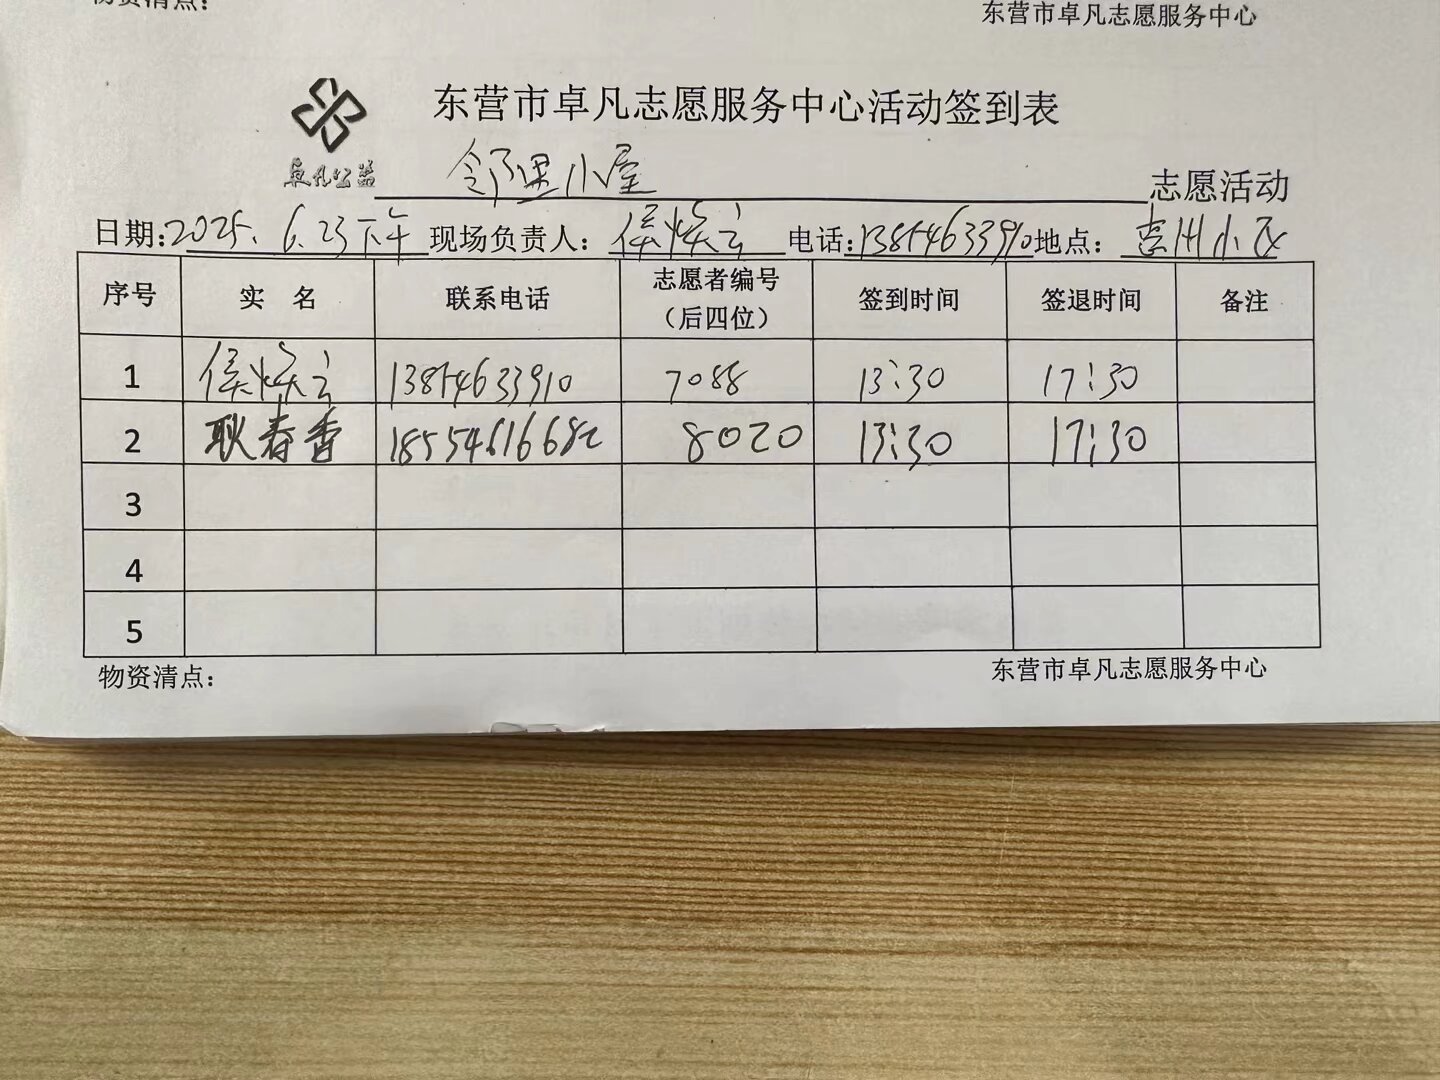 物资清点：
东营市卓凡志愿服务中心
东营市卓凡志愿服务中心活动签到表
卓凡公益
邻里小屋 志愿活动
日期：2025.6.23下午 现场负责人：侯焕云 电话：13854633910 地点：吉州小区
序号 实 名 联系电话 志愿者编号（后四位） 签到时间 签退时间 备注
1 侯焕云 13854633910 7088 13:30 17:30
2 耿春香 18554616682 8020 13:30 17:30
3
4
5
物资清点：
东营市卓凡志愿服务中心